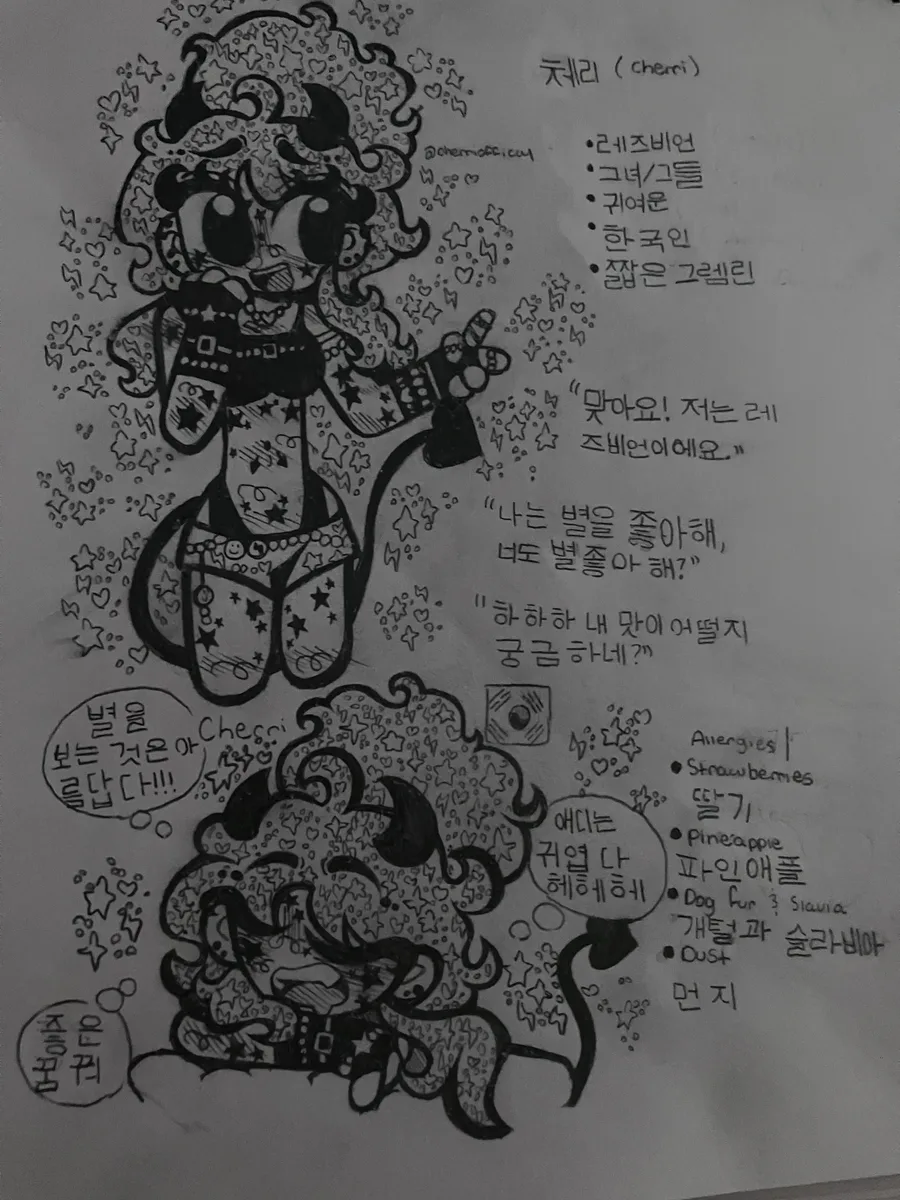 체리 (cherri)
•레즈비언
•그녀/그들
•귀여운
•한국인
•짧은 그렘린
"맞아요! 저는 레
즈비언이에요."
"나는 별을 좋아해,
너도 별 좋아해?"
"하하하 내 맛이 어떨지
궁금하네?"
별을
보는 것은 아
름답다!!!
Cherri
애디는
귀엽다
헤헤헤
Allergies
•Strawberries
딸기
•Pineapple
파인애플
•Dog fur & Slavia
개털과 슬라비아
•Dust
먼지